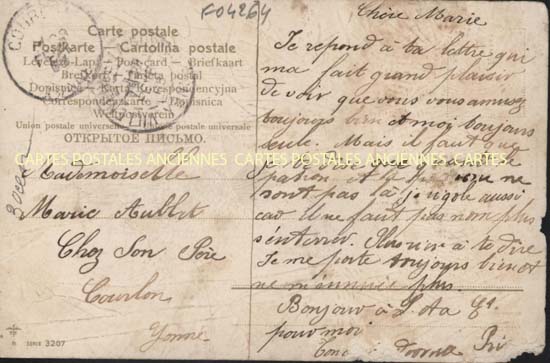 F04264
Carte postale
Postkarte — Cartolina postale
Levelező-Lap — Post-card — Briefkaart
Brevkort — Tarjeta postal
Dopisnica — Karta Korespondencyjna
Correspondenzkarte — Dopisnica
Weltpostverein
Union postale universelle postale universale
ОТКРЫТОЕ ПИСЬМО.
CARTES POSTALES ANCIENNES CARTES POSTALES ANCIENNES CARTES POSTALES ANCIENNES
Mademoiselle
Marie
Chez Son Père
Courlon
Yonne
SERIE 3207
Chère Marie
Je repond à ta lettre qui
ma fait grand plaisir
de voir que vous vous amusez
toujours bien et moi toujours
seule. Mais il faut que
ne
sont pas là je rigole aussi
car il ne faut pas non plus
s'enterrer. Plus rien à te dire
Je me porte toujours bien et
ne m'ennuie plus
Bonjour à
pour moi